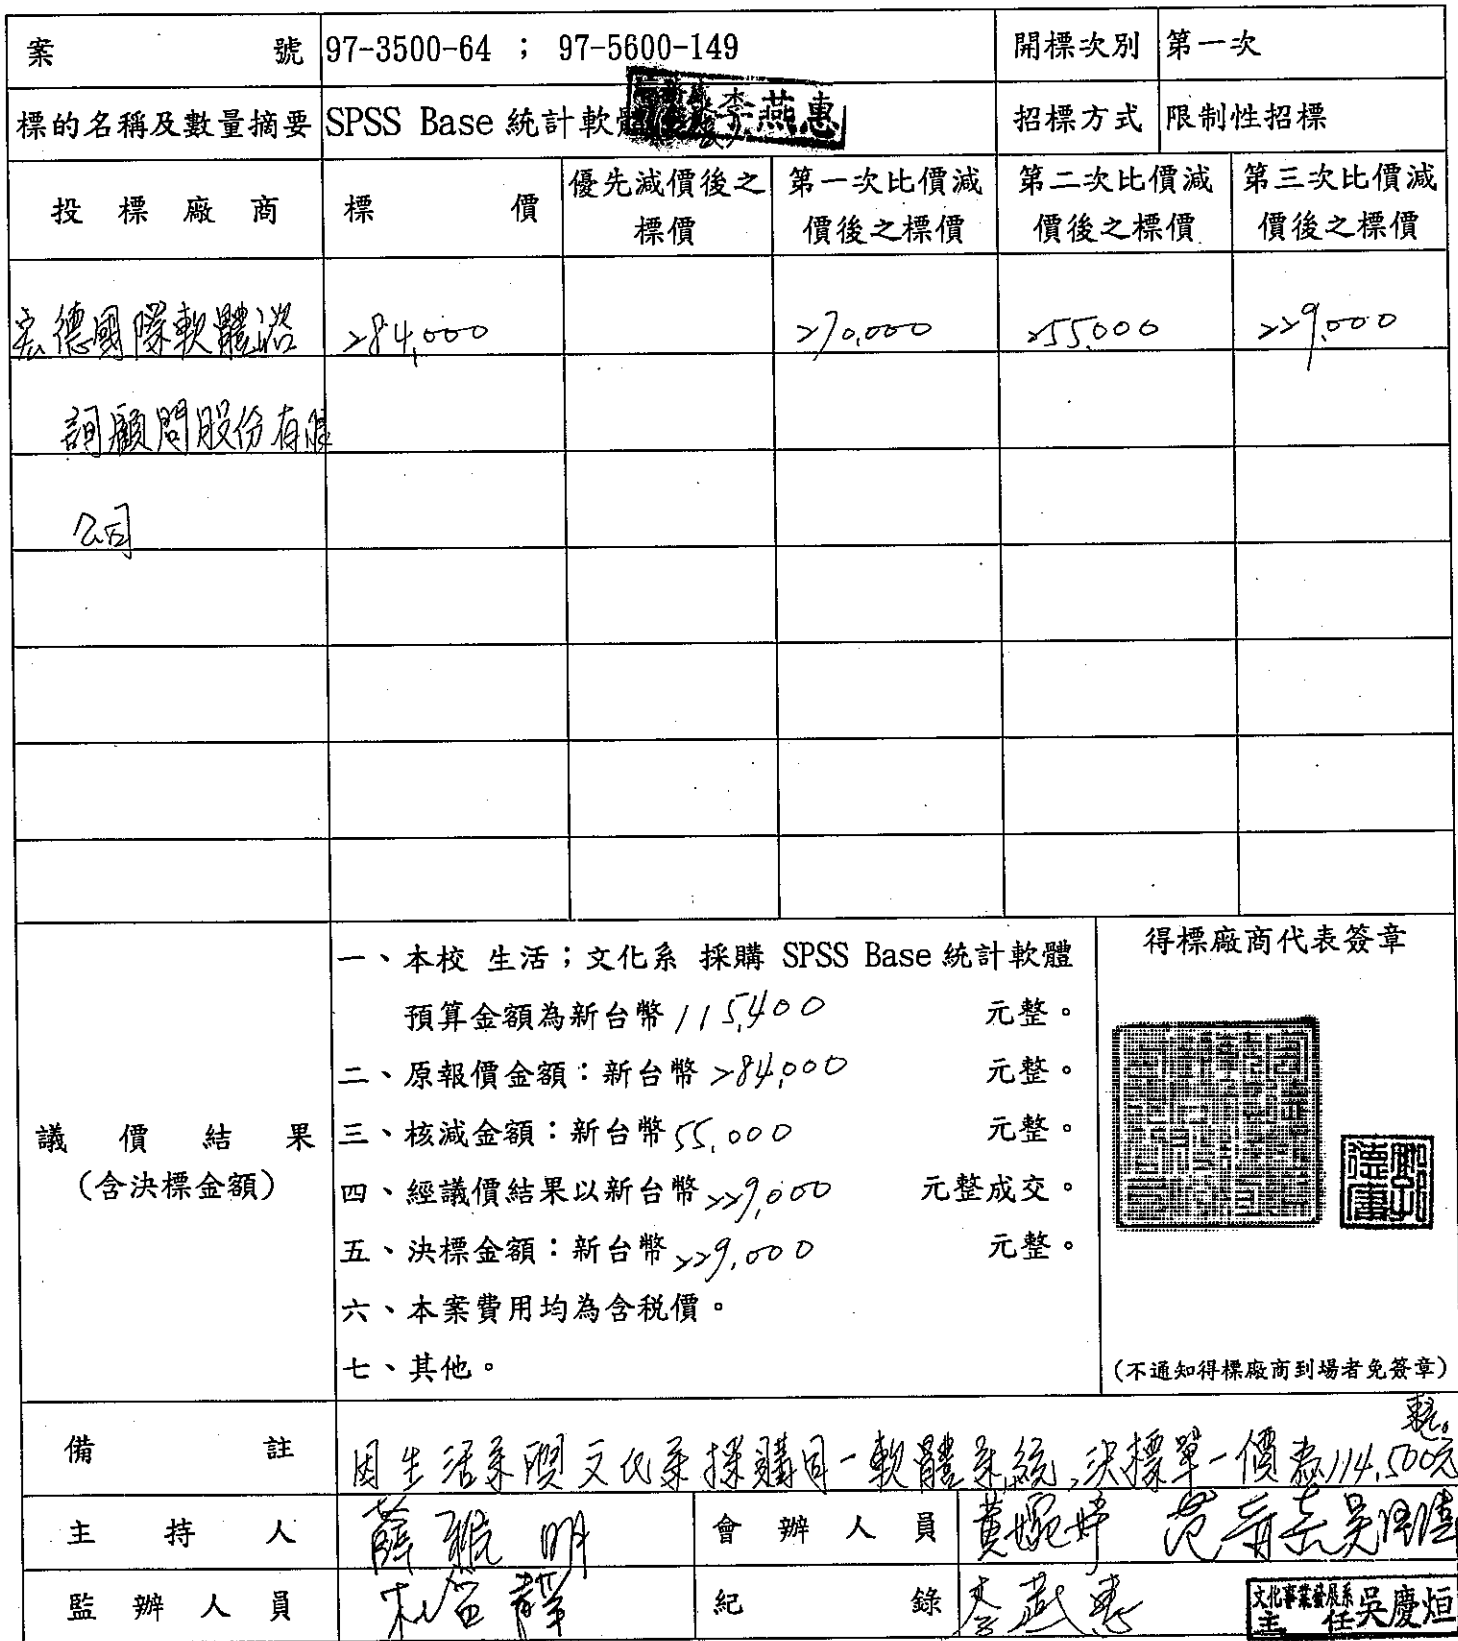 案 號 97-3500-64 ; 97-5600-149 開標次別 第一次
標的名稱及數量摘要 SPSS Base 統計軟體 李燕惠 招標方式 限制性招標
投標廠商 標價 優先減價後之標價 第一次比價減價後之標價 第二次比價減價後之標價 第三次比價減價後之標價
宏德國際軟體諮 284,000 270,000 255,000 229,000
詢顧問股份有限
公司
議價結果
(含決標金額)
一、本校 生活；文化系 採購 SPSS Base 統計軟體
預算金額為新台幣 115,400 元整。
二、原報價金額：新台幣 284,000 元整。
三、核減金額：新台幣 55,000 元整。
四、經議價結果以新台幣 229,000 元整成交。
五、決標金額：新台幣 229,000 元整。
六、本案費用均為含稅價。
七、其他。
得標廠商代表簽章
(不通知得標廠商到場者免簽章)
備註 因生活系與文化系採購同一軟體系統,決標單一價為114,500元整。
主持人 薛雅明 會辦人員 黃婉婷
監辦人員 紀錄 李燕惠
文化事業發展系
主任 吳慶烜